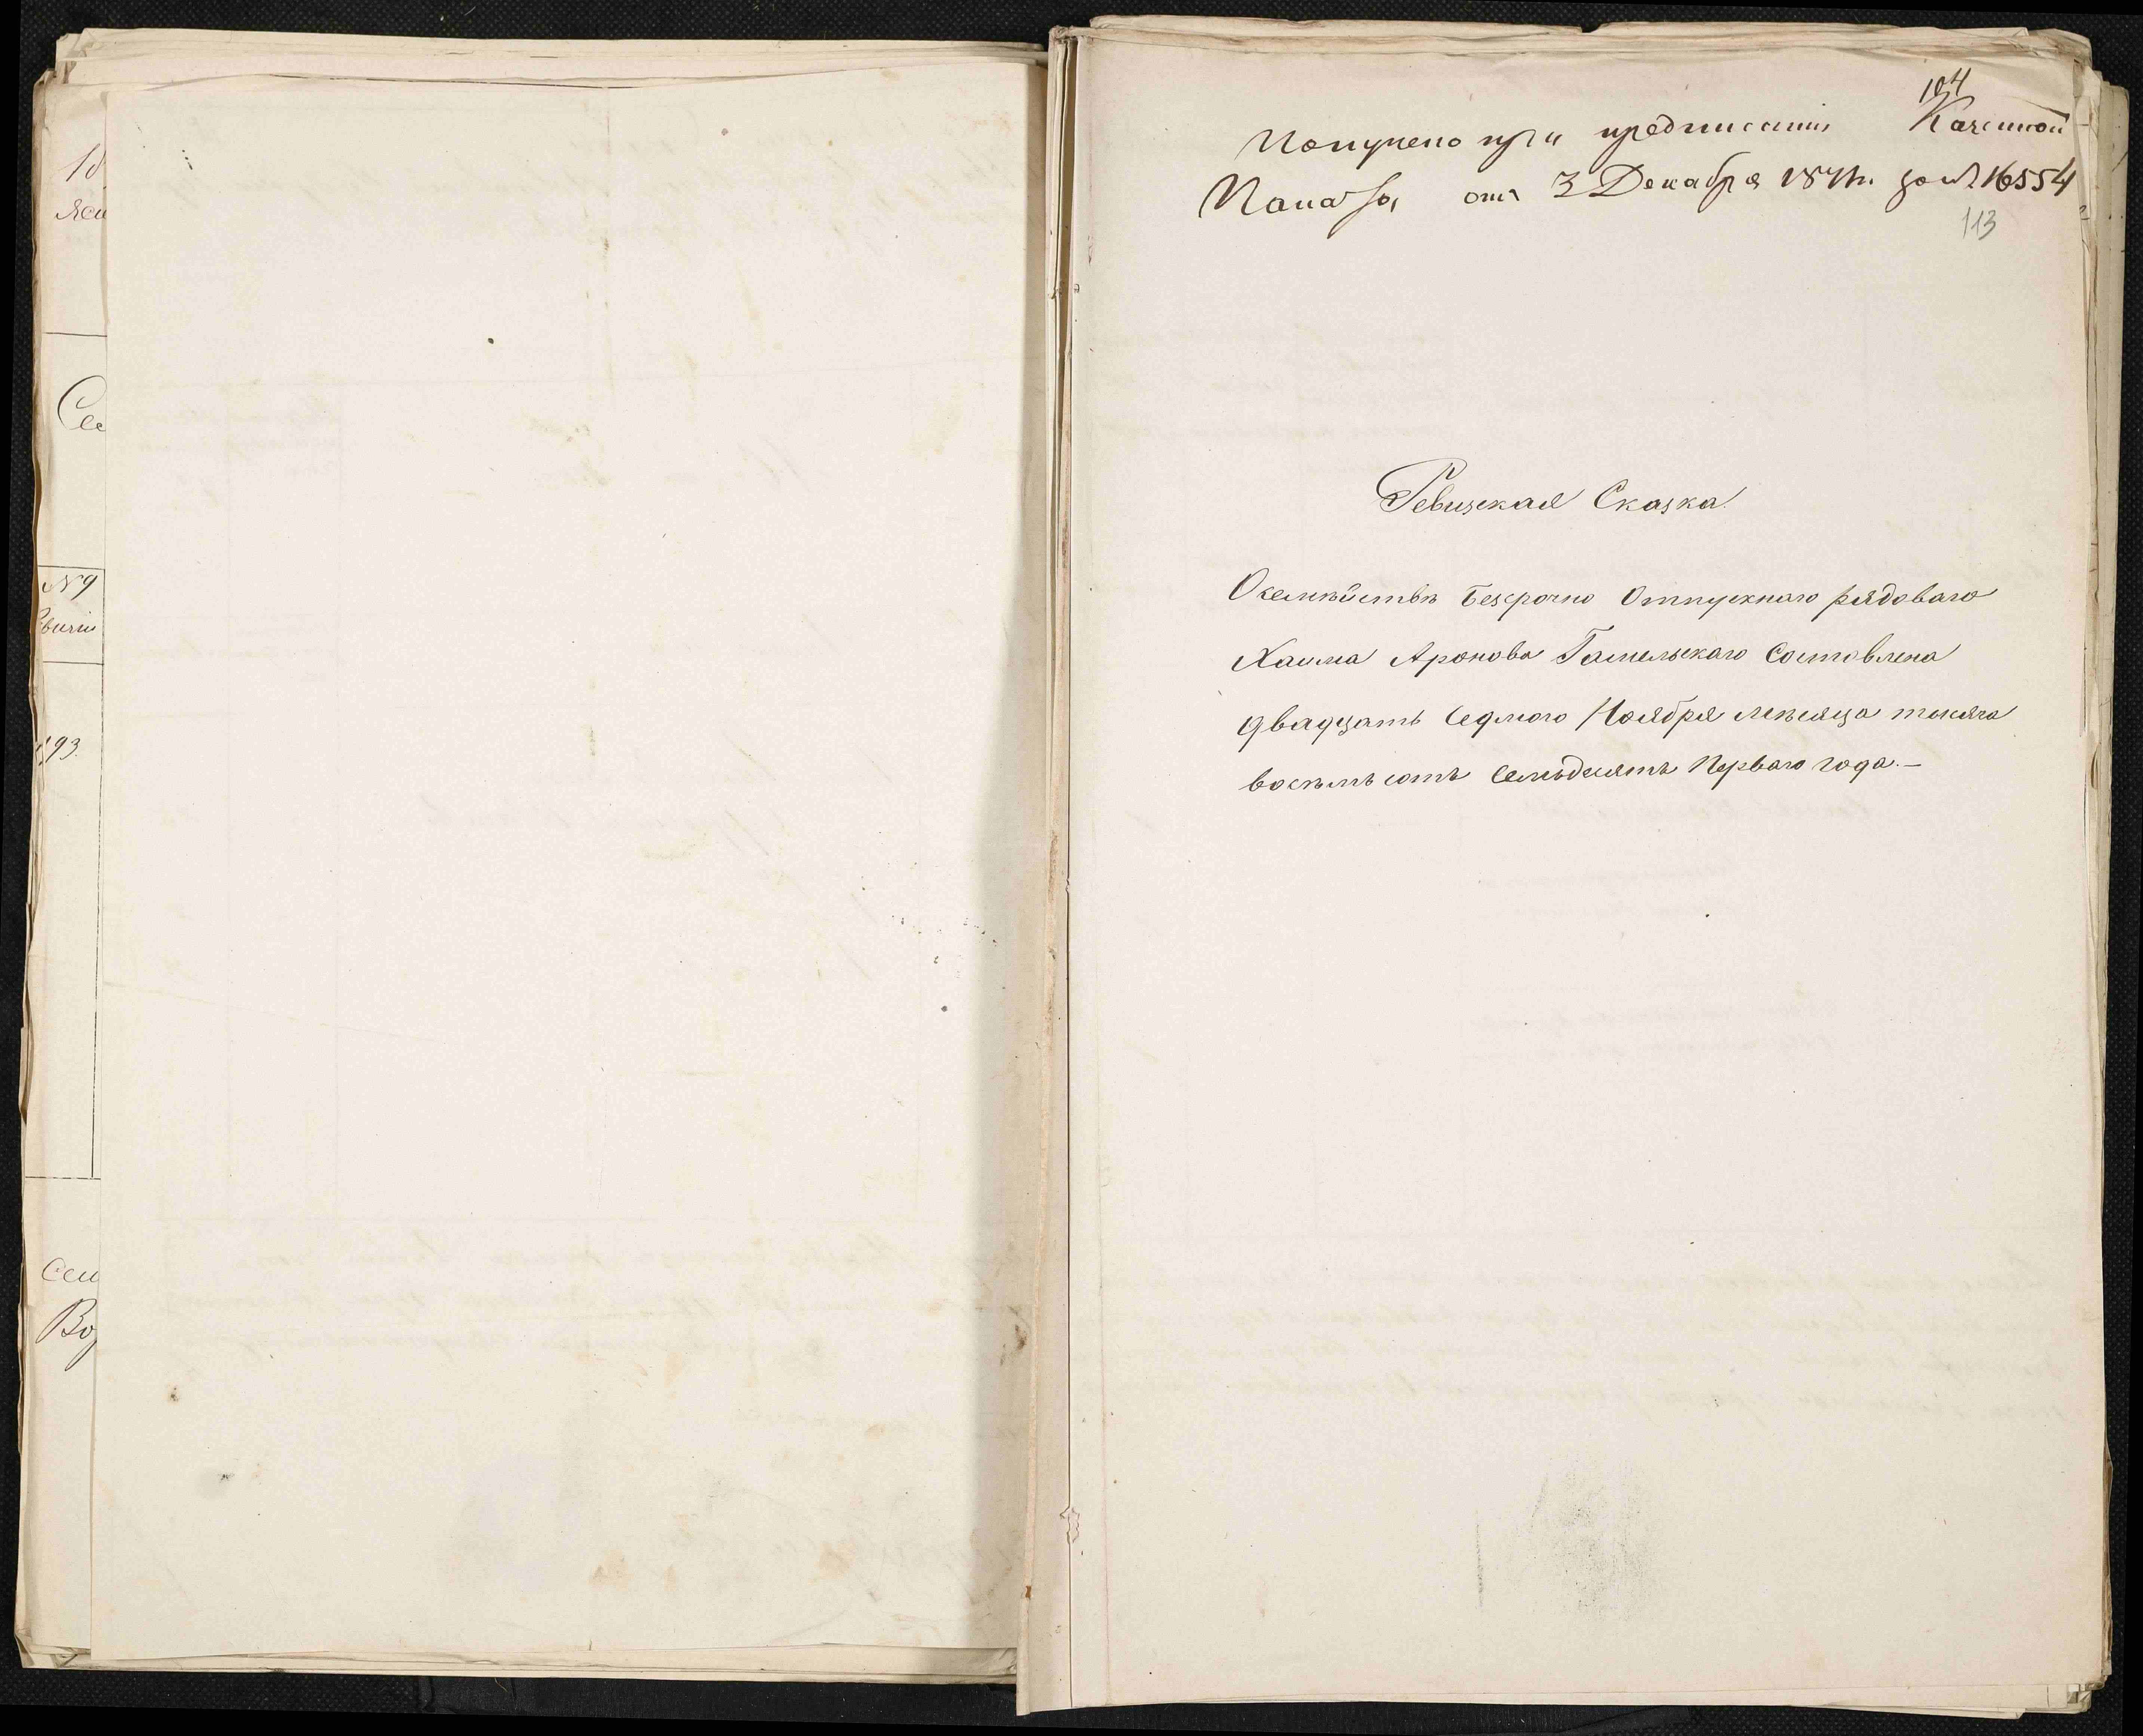 18
яси
Се
№ 9
визіи
193.
Сем
Воз
104
Получено при предписаніи Казенной
Палаты отъ 3 Декабря 1871 г. за № 16554
113
Ревизская Сказка.
О семѣйствѣ безсрочно Отпускнаго рядоваго
Хаима Аронова Гательскаго Составлена
двадцать Седмого Ноября мѣсяца тысяча
восѣмьсотъ Семьдесятъ Перваго года.—